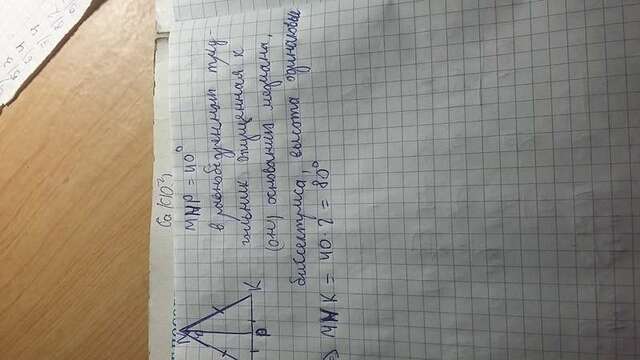 Ca(ClO3)
N
P
K
MNP = 40°
в равнобедренном тру-
гольник опущенная к
(он) основании медиана,
биссектриса, высота одинаковые
=> MNK = 40·2 = 80°